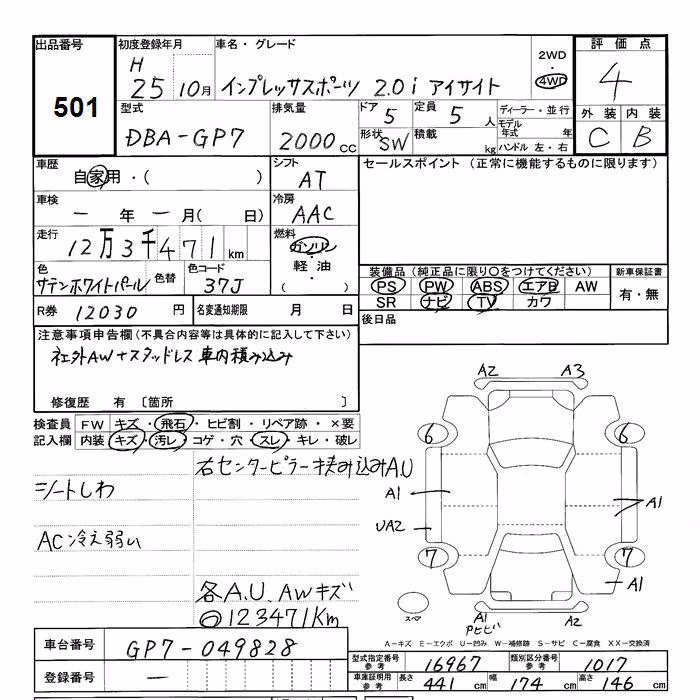 出品番号 初度登録年月 車名・グレード 2WD 評価点
501 H 25 10月 インプレッサスポーツ 2.0i アイサイト 4WD 4
型式 排気量 ドア 5 定員 5人 ディーラー・並行 外装 内装
DBA-GP7 2000cc 形状 SW 積載 kg モデル年式 年 C B
ハンドル 左・右
車歴 自家用・( ) シフト AT セールスポイント (正常に機能するものに限ります)
車検 一年一月( 日) 冷房 AAC
走行 12万3千471km 燃料 ガソリン・軽油・( )
色 サテンホワイトパール 色替 色コード 37J 装備品 (純正品に限り○をつけてください) 新車保証書
PS PW ABS エアB AW 有・無
SR ナビ TV カワ
R券 12030円 名変通知期限 月 日 後日品
注意事項申告欄(不具合内容等は具体的に記入して下さい)
社外AW+スタッドレス 車内積み込み
修復歴 有 〔箇所 〕
検査員 FW キズ・飛石・ヒビ割・リペア跡・×要
記入欄 内装 キズ・汚レ・コゲ・穴・スレ・キレ・破レ
右センターピラー挟み込みAU
シートしわ
AC冷え弱い
各A.U. AWキズ
◎123471Km
A2 A3
6 6
A1 A1
UA2
7 7
A1
スペア A1 A2
Pヒビ
A-キズ E-エクボ U-凹み W-補修跡 S-サビ C-腐食 XX-交換済
車台番号 GP7-049828 型式指定番号 参考 16967 類別区分番号 参考 1017
登録番号 一 車庫証明用 参考 長さ 441cm 幅 174cm 高さ 146cm